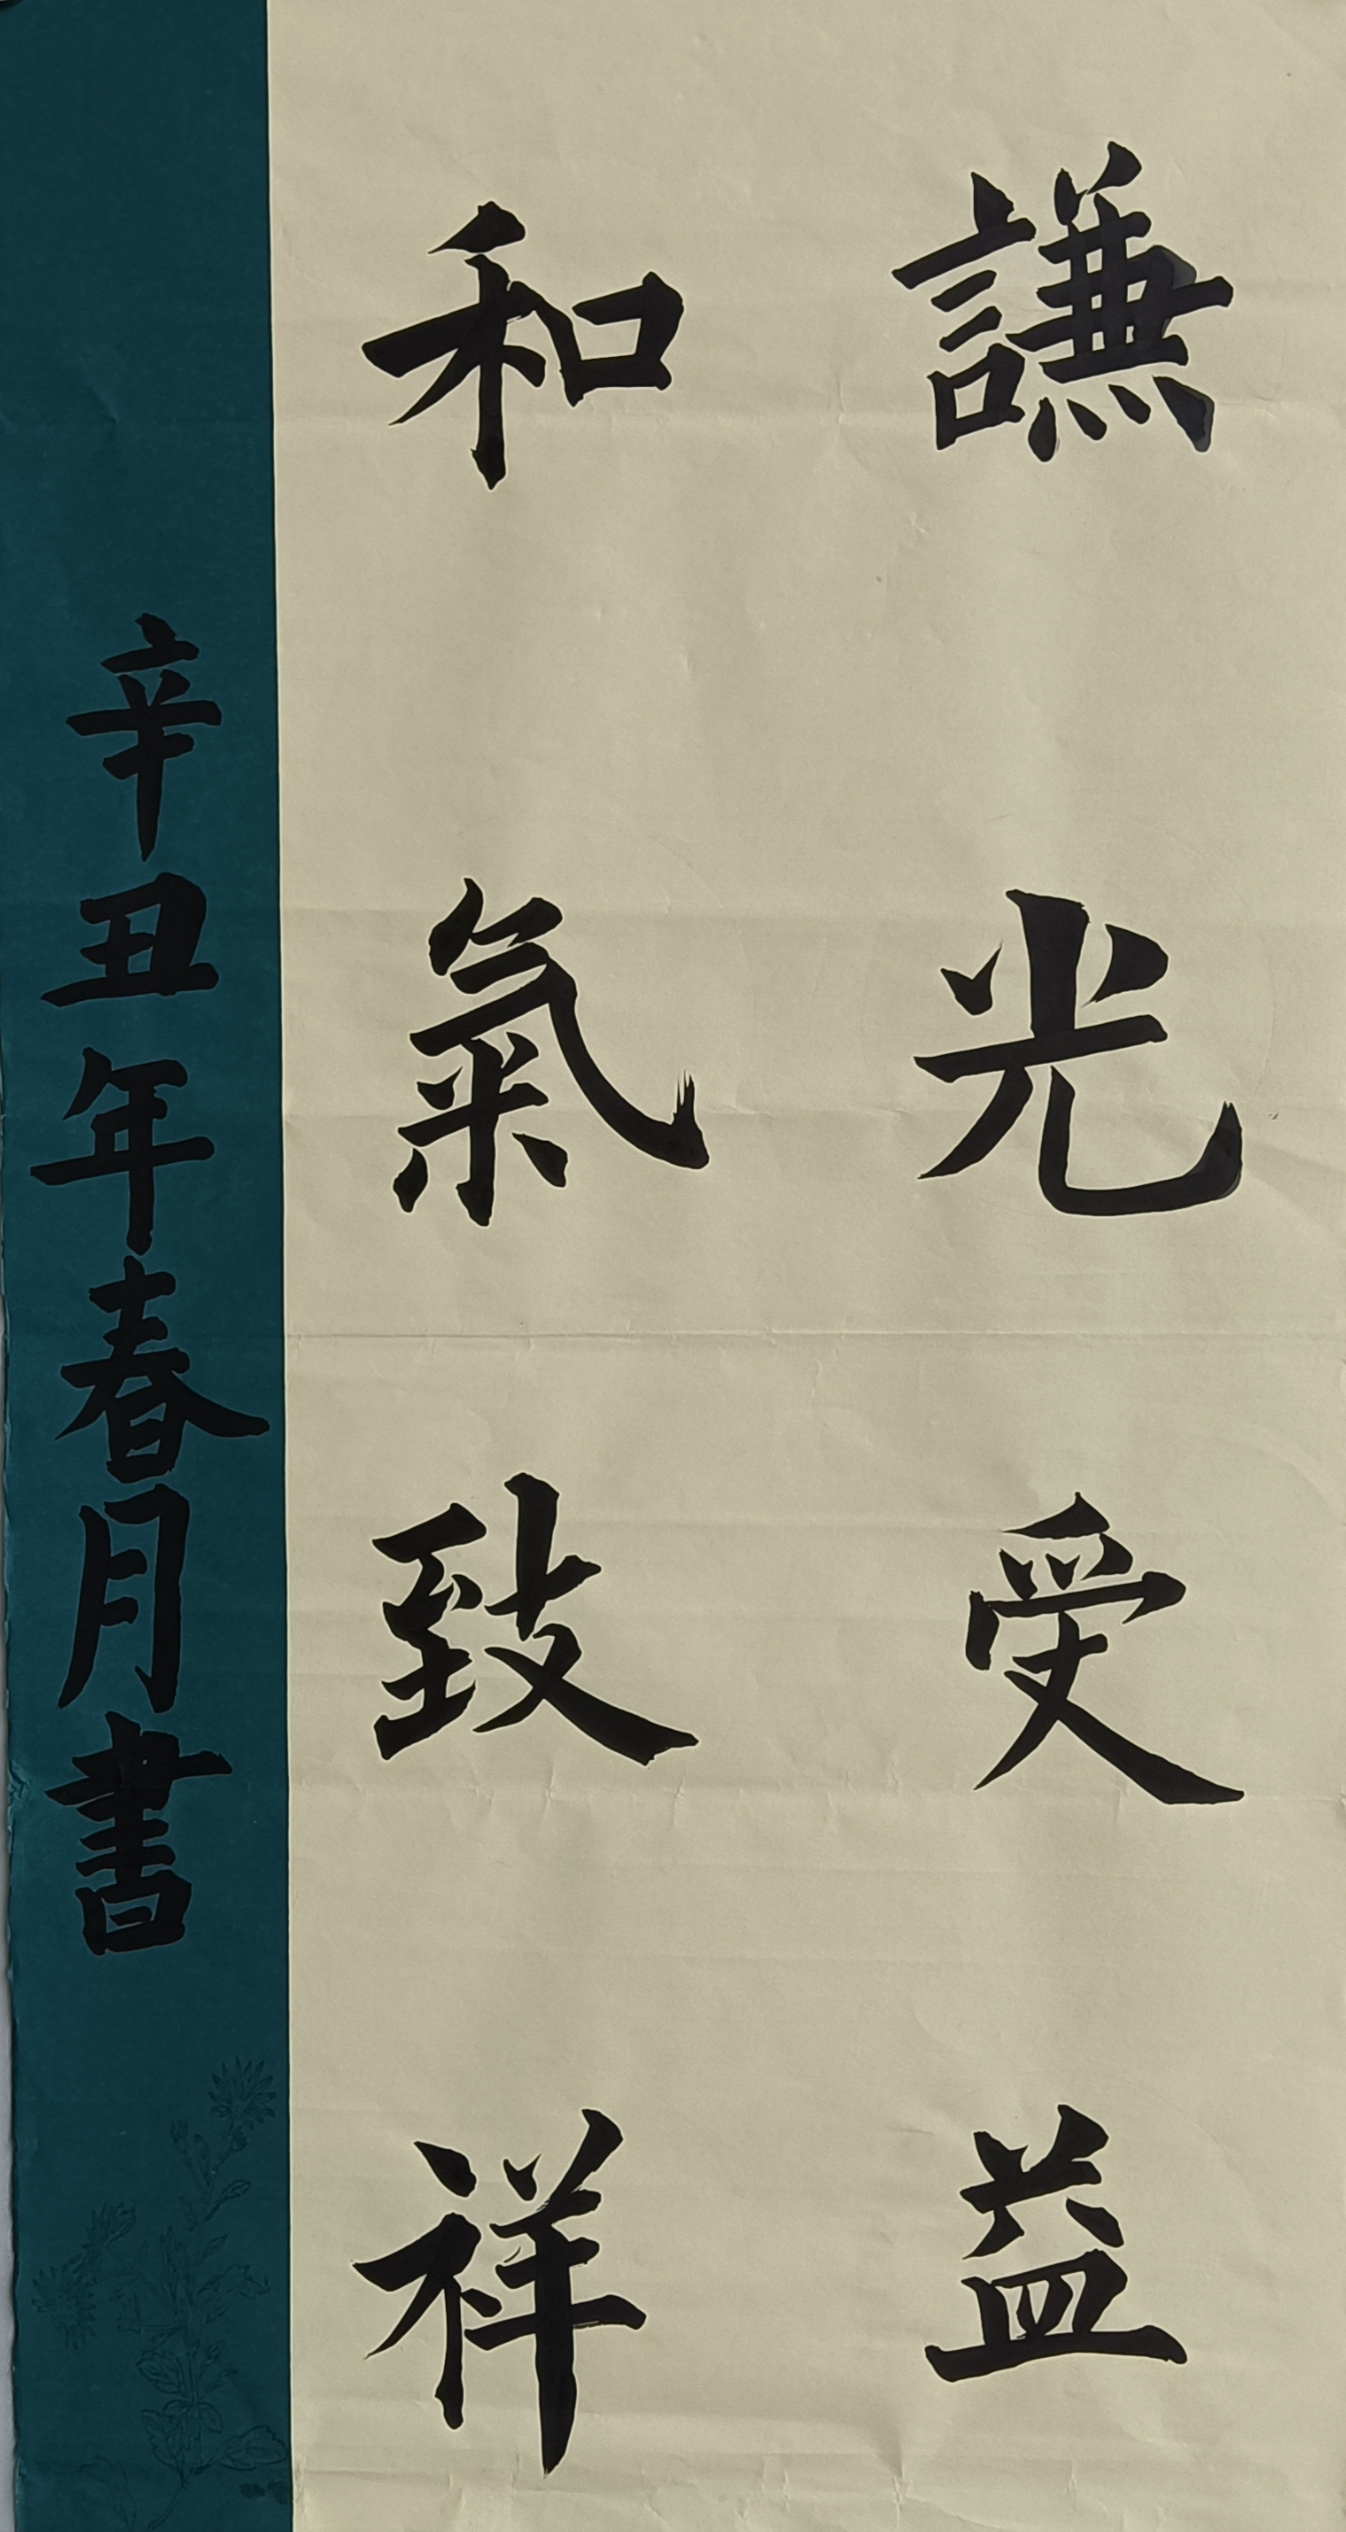 謙光受益
和氣致祥
辛丑年春月書